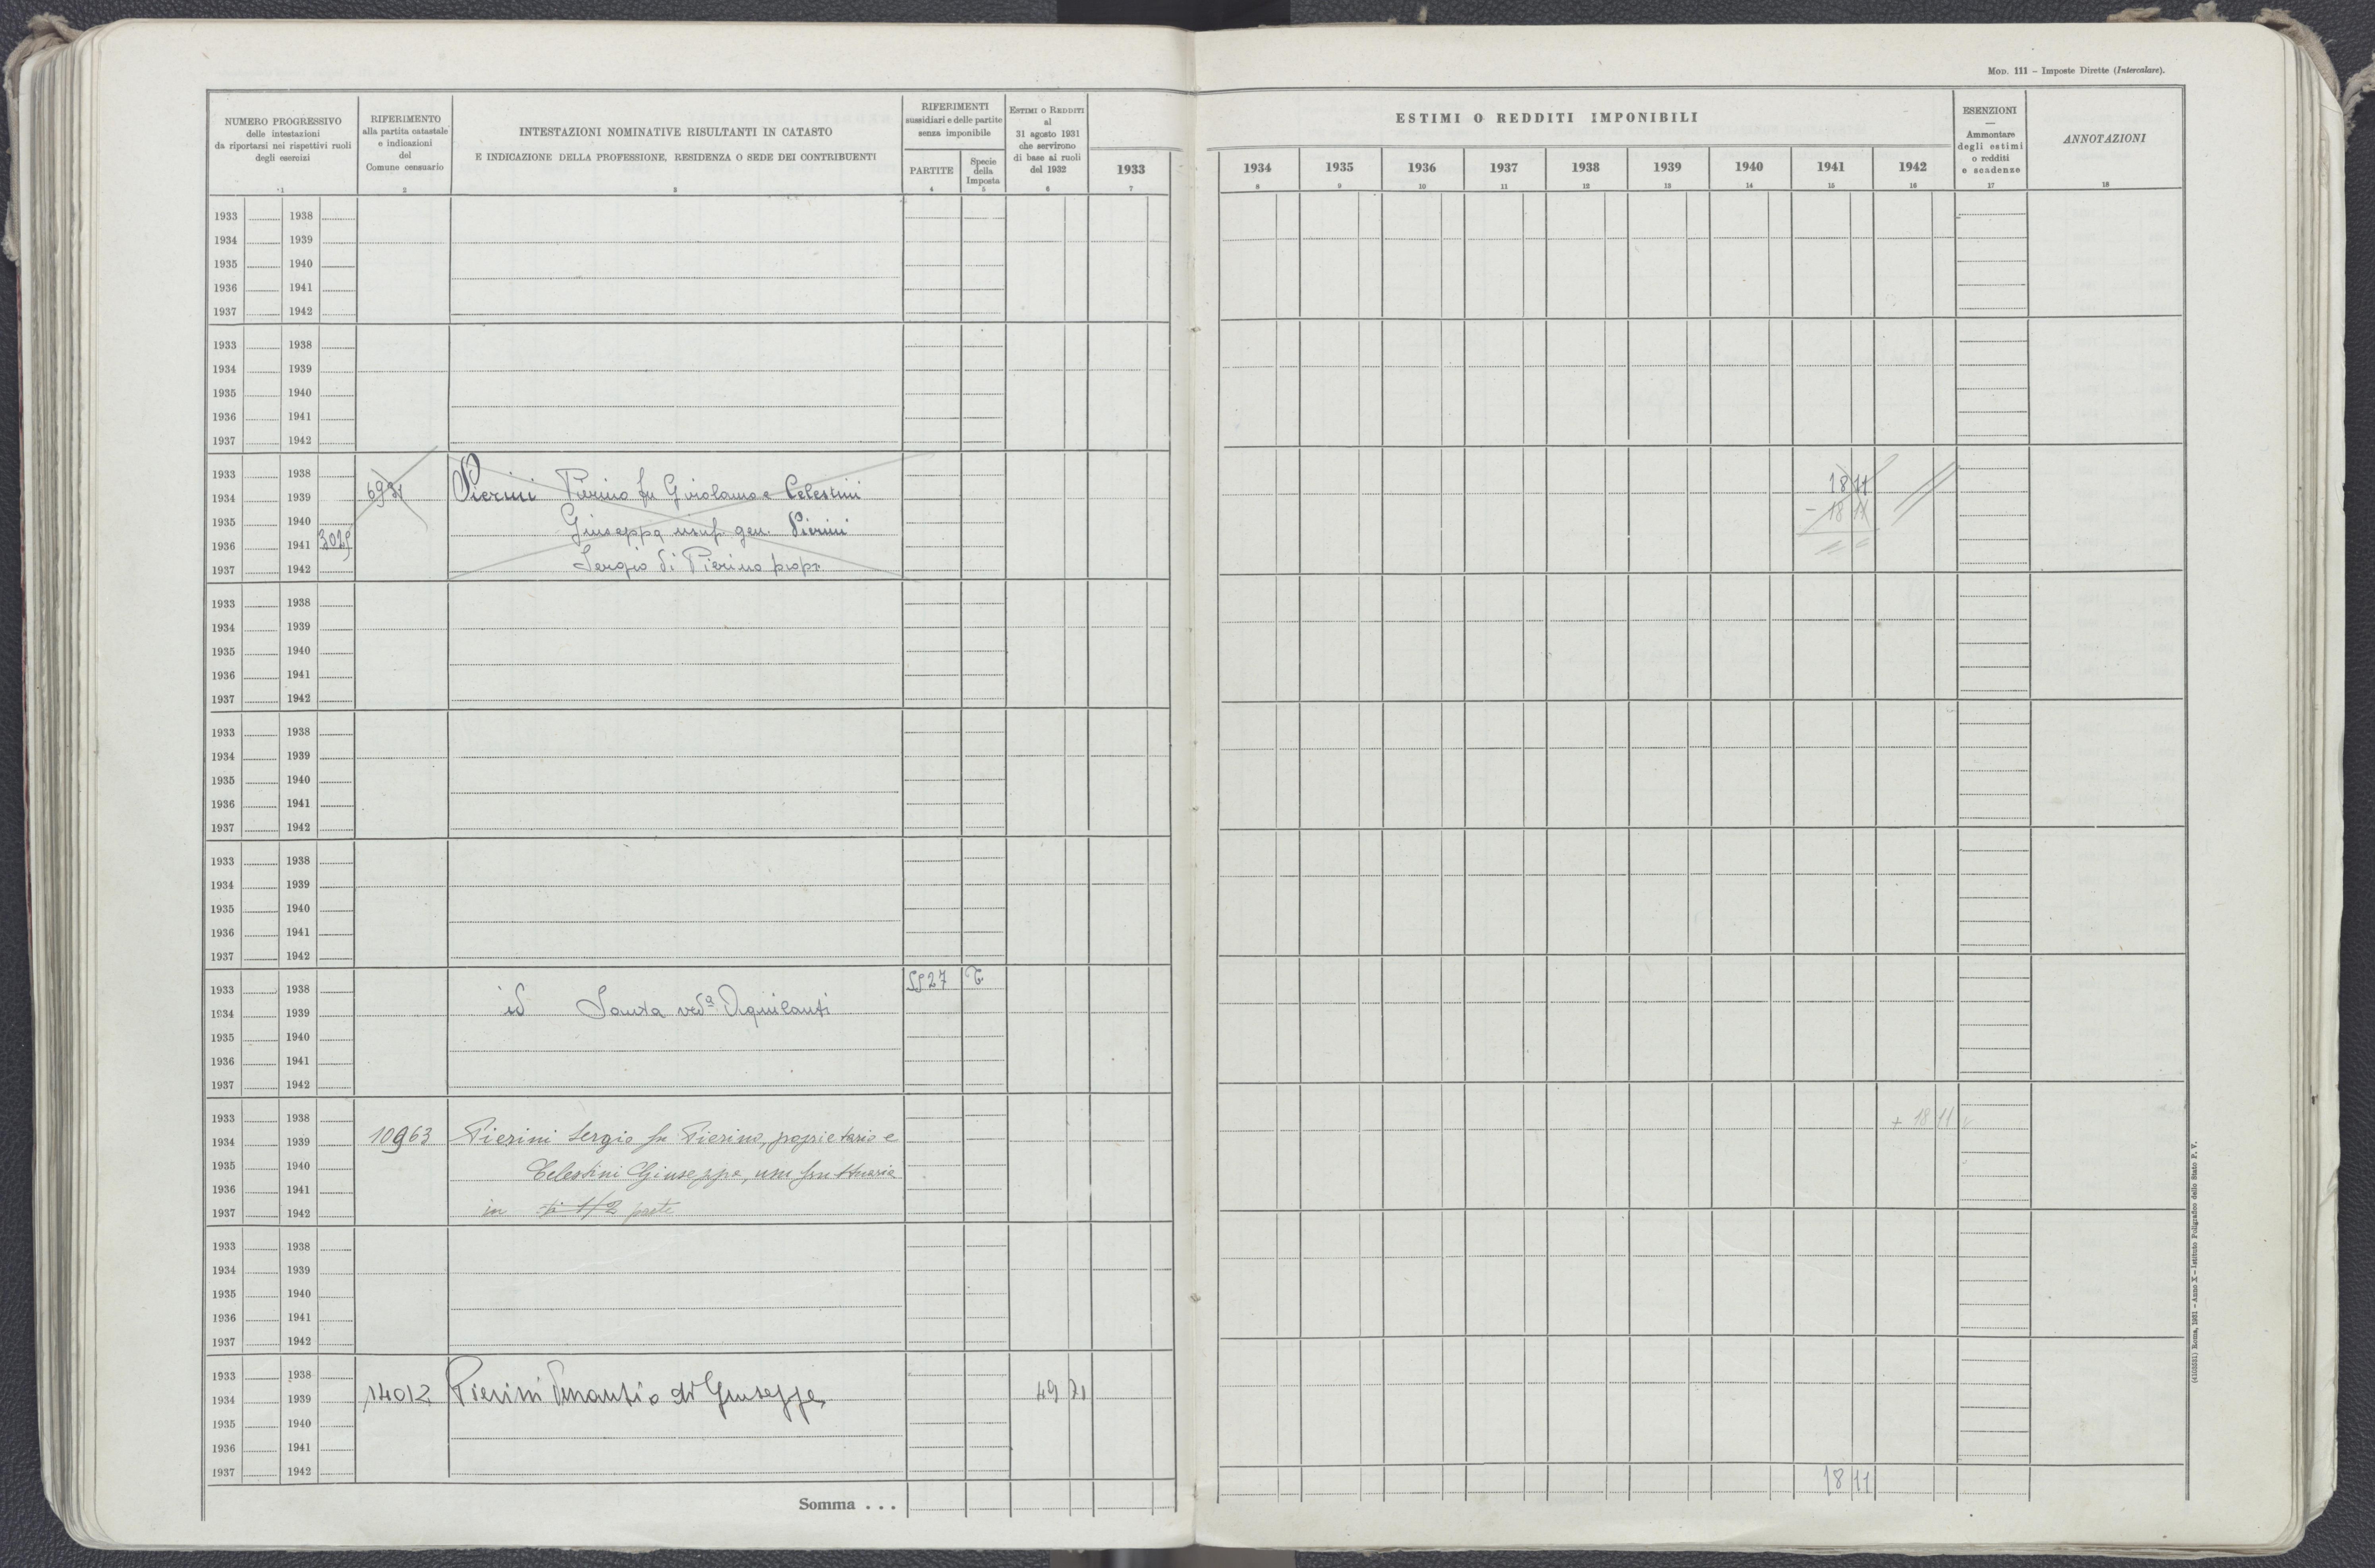 MOD. 111 – Imposte Dirette (Intercalare).
NUMERO PROGRESSIVO
delle intestazioni
da riportarsi nei rispettivi ruoli
degli esercizi
1
RIFERIMENTO
alla partita catastale
e indicazioni
del
Comune censuario
2
INTESTAZIONI NOMINATIVE RISULTANTI IN CATASTO
E INDICAZIONE DELLA PROFESSIONE, RESIDENZA O SEDE DEI CONTRIBUENTI
3
RIFERIMENTI
sussidiari e delle partite
senza imponibile
PARTITE
4
Specie
della
Imposta
5
ESTIMI O REDDITI
al
31 agosto 1931
che servirono
di base ai ruoli
del 1932
6
1933
7
ESTIMI O REDDITI IMPONIBILI
1934 1935 1936 1937 1938 1939 1940 1941 1942
8 9 10 11 12 13 14 15 16
ESENZIONI
—
Ammontare
degli estimi
o redditi
e scadenze
17
ANNOTAZIONI
18
1933 1938
1934 1939
1935 1940
1936 1941
1937 1942
1933 1938
1934 1939
1935 1940
1936 1941
1937 1942
1933 1938
1934 1939 Pierini Pierino fu Girolamo e Celestini 18 11
1935 1940 Giuseppa usuf. gen. Pierini - 18 11
1936 1941 3025
1937 1942 Sergio di Pierino propr.
1933 1938
1934 1939
1935 1940
1936 1941
1937 1942
1933 1938
1934 1939
1935 1940
1936 1941
1937 1942
1933 1938
1934 1939
1935 1940
1936 1941
1937 1942
5527 T
1933 1938
1934 1939 id Santa ved.a Aquilanti
1935 1940
1936 1941
1937 1942
1933 1938 + 18 11
1934 1939 10963 Pierini Sergio fu Pierino, proprietario e
1935 1940 Celestini Giuseppa, usufruttuaria
1936 1941
1937 1942 in di 1/2 parte
1933 1938
1934 1939
1935 1940
1936 1941
1937 1942
1933 1938
1934 1939 14012 Pierini Venantio di Giuseppe 49 71
1935 1940
1936 1941
1937 1942
Somma . . . 18 11
(4103531) Roma, 1931 – Anno X – Istituto Poligrafico dello Stato P. V.